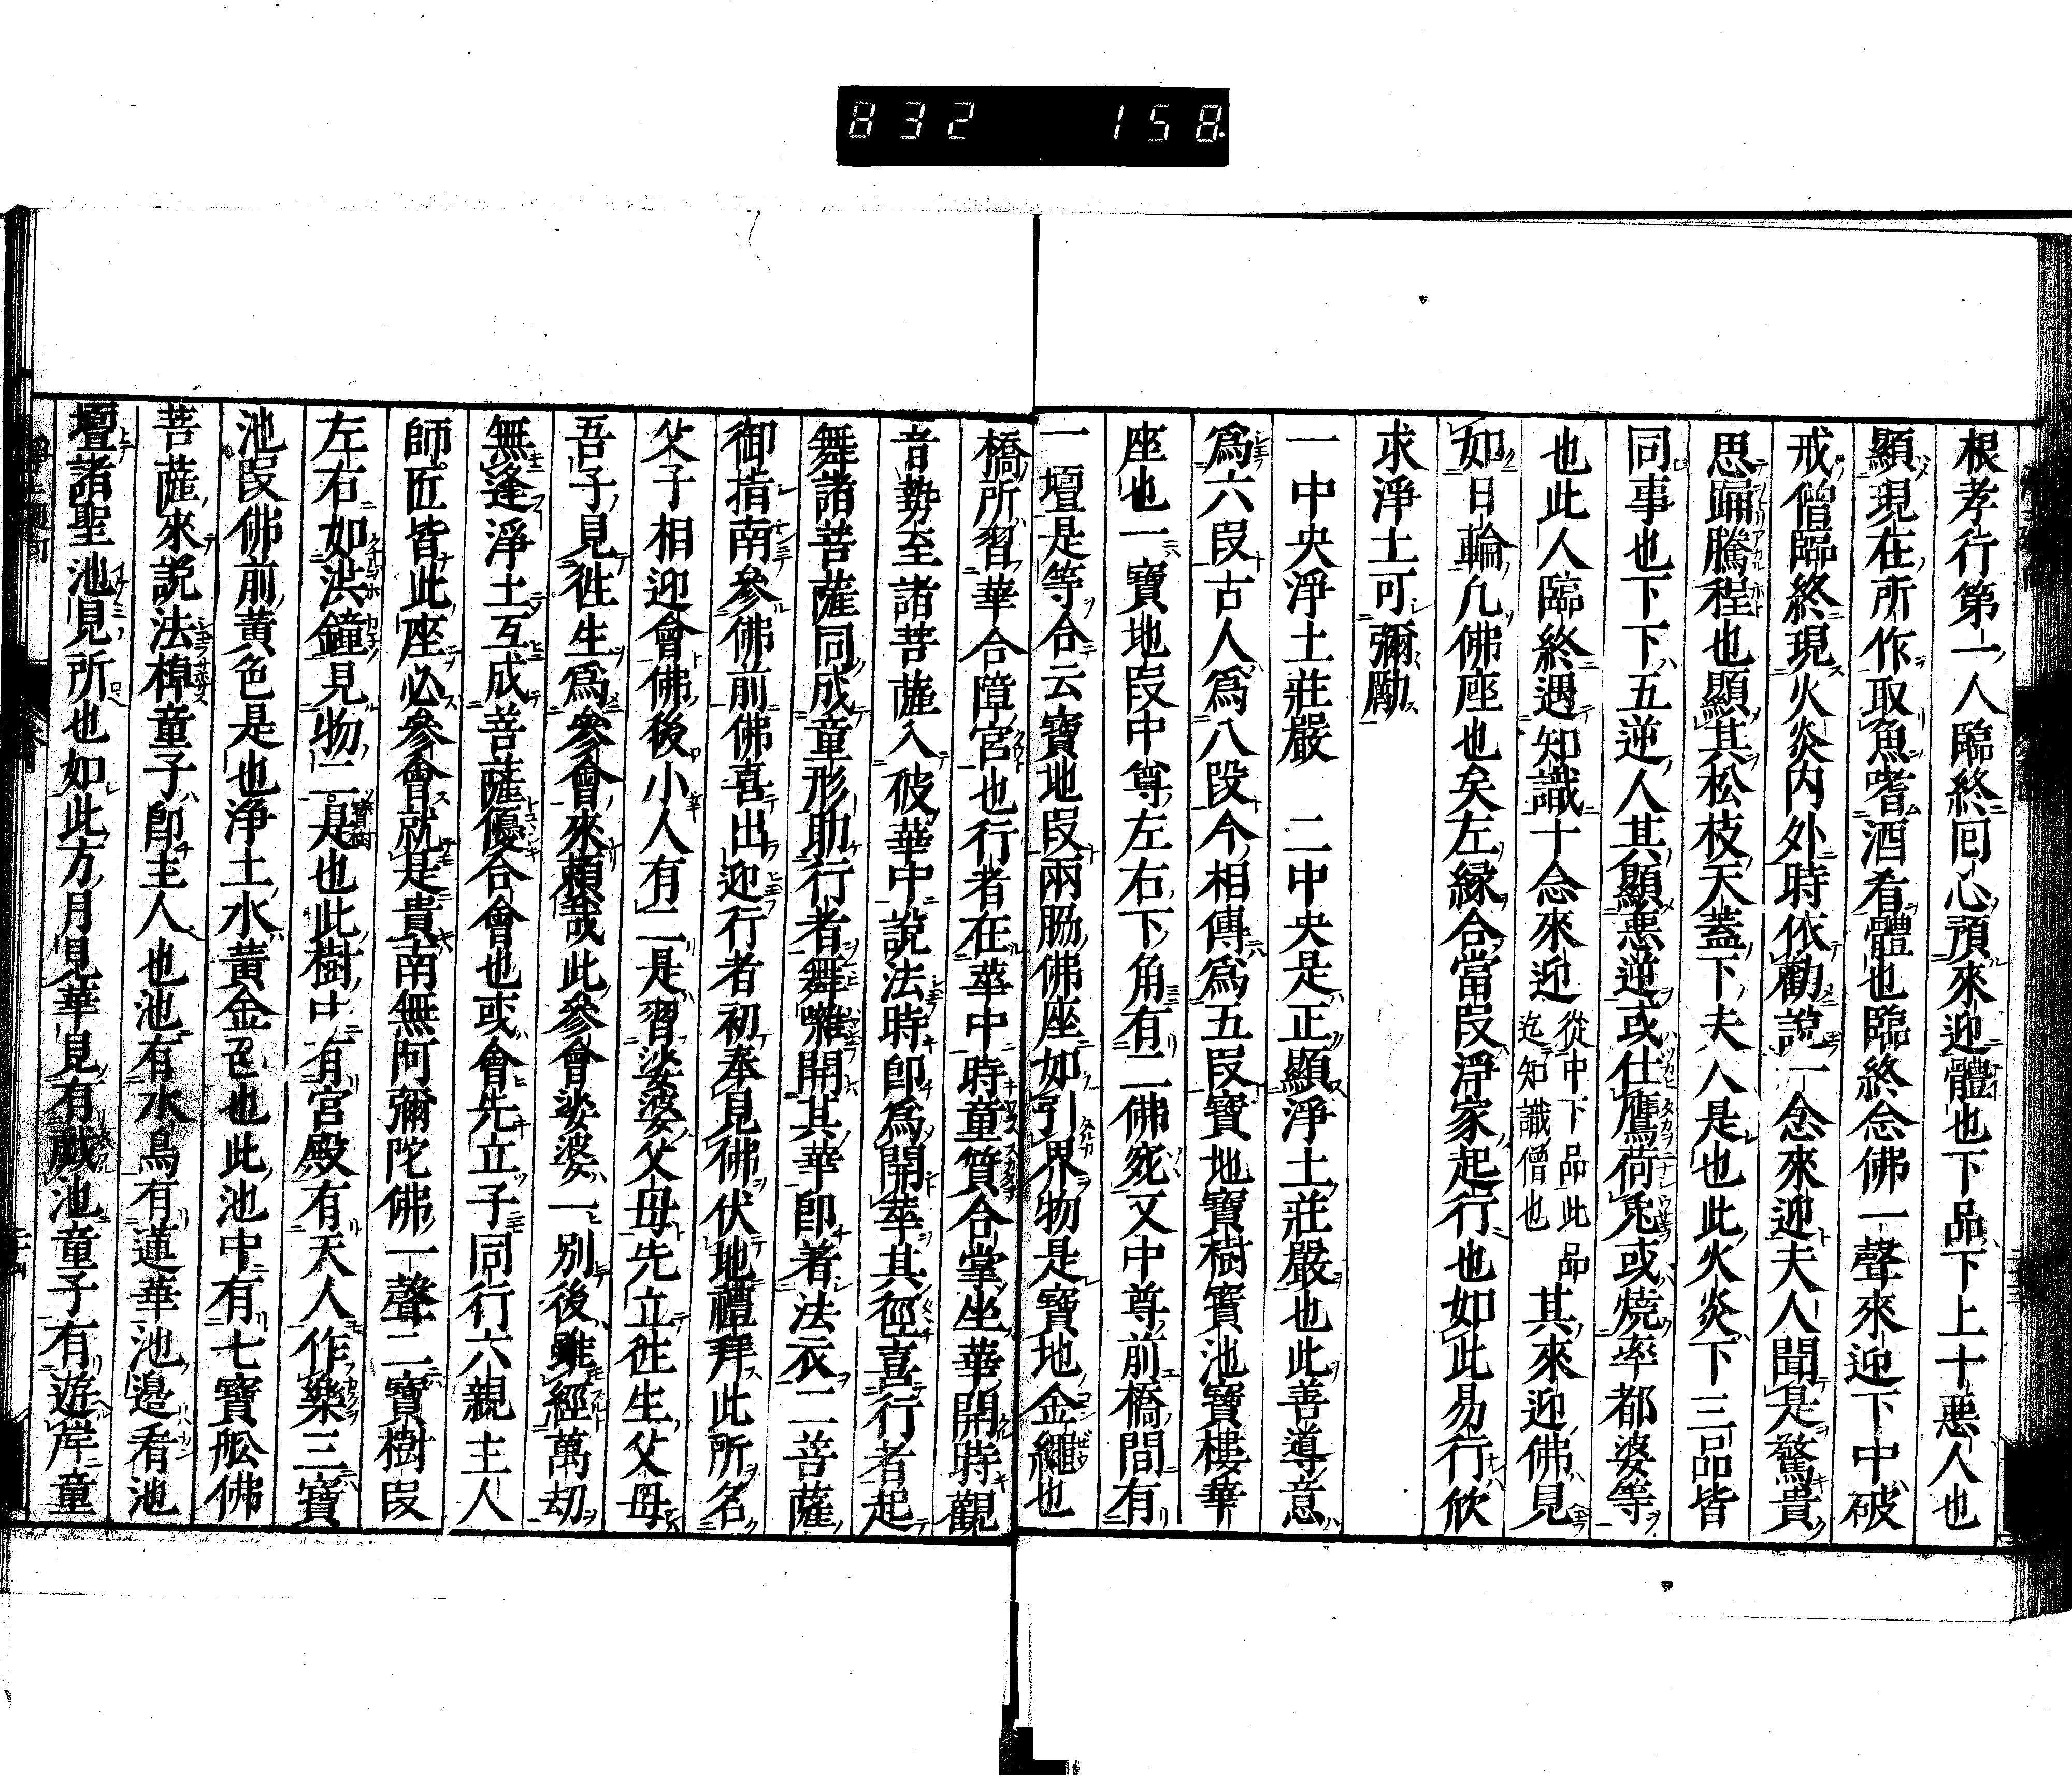 832 158
根孝行第一人臨終回心預來迎體也下品下上十惡人也
顯現在所作取魚嗜酒看體也臨終念佛一聲來迎下中破
戒僧臨終現火炎内外時依勸說一念來迎夫人聞是驚貴
思踊騰程也顯其松枝天蓋下夫人是也此火炎下三品皆
同事也下下五逆人其顯惡逆或仕鷹荷兎或燒率都婆等
也此人臨終遇知識十念來迎從中下品此品迄知識僧也其來迎佛見
如日輪凡佛座也矣左緣合當段淨家起行也如此易行欣
求淨土可彌勵
一中央淨土莊嚴 二中央是正顯淨土莊嚴也此善導意
爲六段古人爲八段今相傳爲五段寶地寶樹寶池寶樓華
座也一寶地段中尊左右下角有二佛死又中尊前橋間有
一壇是等合云寶地段兩脇佛座如引界物是寶地金繩也
橋所習華合障宮也行者在華中時童質合掌坐華開時觀
音勢至諸菩薩入彼華中說法時即爲開華其徑喜行者起
舞諸菩薩同成童形助行者舞囃開其華即著法衣二菩薩
御指南參佛前佛喜出迎行者初奉見佛伏地禮拜此所名
父子相迎會佛後小人有二是習娑婆父母先立往生父母
吾子見往生爲參會來賴哉此參會娑婆一別後雖經萬劫
無逢淨土互成菩薩優合會也或會先立子同行六親主人
師匠皆此座必參會就是貴南無阿彌陀佛一聲二寶樹段
左右如洪鐘見物二是寶樹也此樹中有宮殿有天人作樂三寶
池段佛前黃色是也淨土水黃金色也此池中有七寶舩佛
菩薩來說法棹童子即主人也池有水鳥有蓮華池邊看池
壇諸聖池見所也如此方月見華見有戲池童子有遊岸童